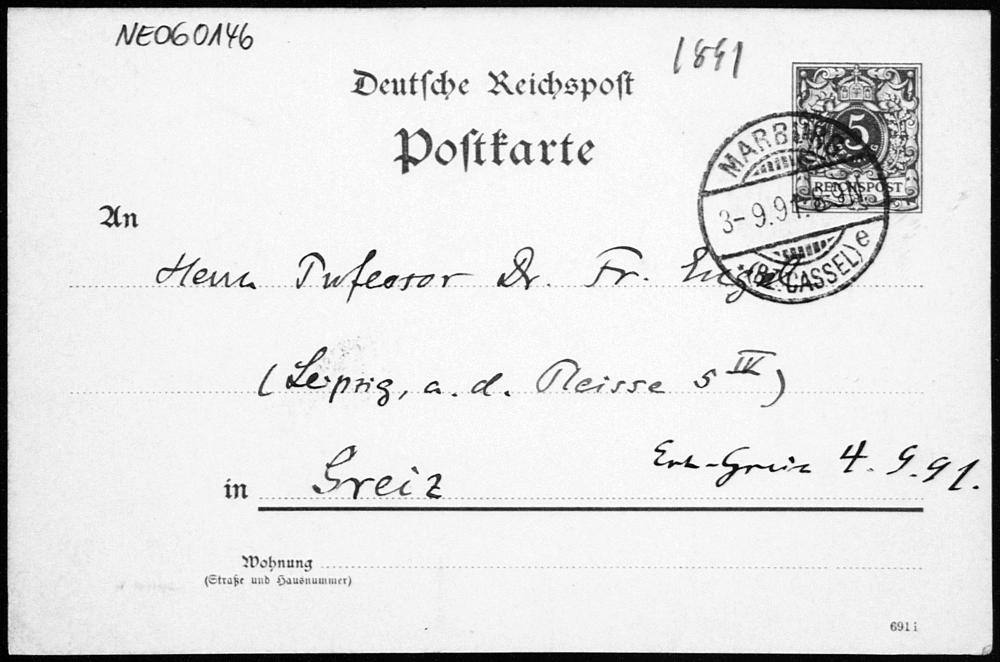 NE060146
1891
Deutsche Reichspost
Postkarte
5
REICHSPOST
MARBURG
3-9.91. 8-9N
*(BZ. CASSEL) e
An
Herrn Professor Dr. Fr. Engel
(Leipzig, a. d. Pleisse 5 IV)
in Greiz
Erh. Greiz 4. 9. 91.
Wohnung
(Straße und Hausnummer)
691 i